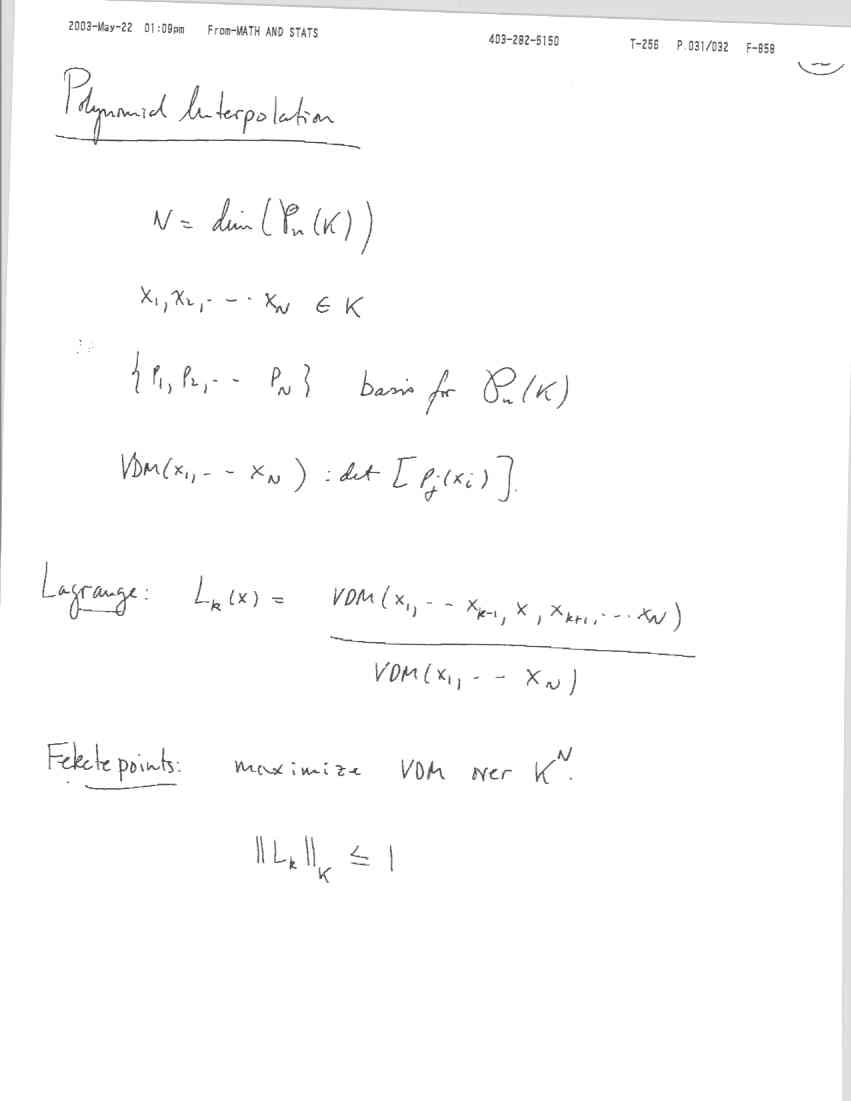 2003-May-22 01:09pm From-MATH AND STATS 403-282-5150 T-256 P.031/032 F-858
Polynomial Interpolation
N = dim(𝒫ₙ(K))
x₁, x₂, - - · x_N ∈ K
{P₁, P₂, - - P_N} basis for 𝒫ₙ(K)
VDM(x₁, - - x_N) : det [P_j(x_i)].
Lagrange: L_k(x) = VDM(x₁, - - x_{k-1}, x, x_{k+1}, - - · x_N)
VDM(x₁, - - x_N)
Fekete points: maximize VDM over K^N.
||L_k||_K ≤ 1